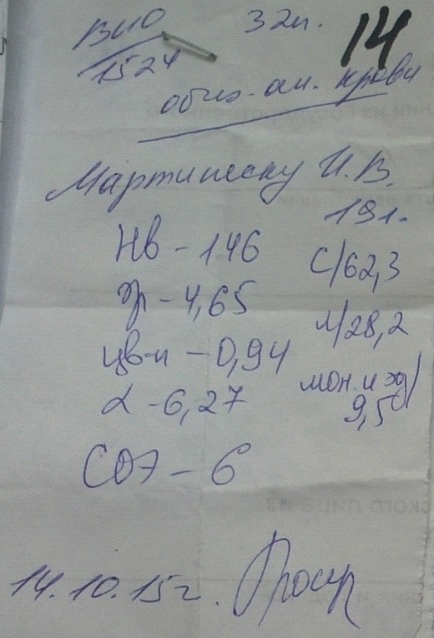 ВИО 32п. 14
1524
общ. ан. крови
Мартинеску И.В.
19г.
Нв - 146
С/62,3
Эр - 4,65
л/28,2
цв-п - 0,94
мон. и эо/
9,5
L - 6,27
СОЭ - 6
14.10.15г.